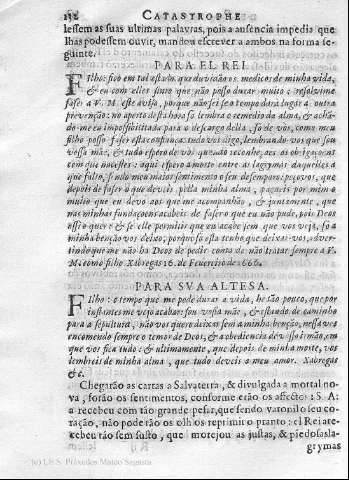 182 CATASTROPHE
lessem as suas ultimas palavras, pois a ausencia impedia que
lhas podessem ouvir, mandou escrever a ambos na forma se-
guinte.
PARA EL REI.
Filho: fico em tal estado, que duvidão os medicos de minha vida,
& eu com elles sinto que não posso durar muito: resolvime
faser a V. M. este aviso, porque não sei se o tempo dará lugar a outra
prevenção: no aperto desta hora só lembra o remedio da alma, & achan-
do-me impossibilitada para o descargo della, só de vos, como meu
filho posso faser esta confiança: tudo vos digo, lembrando-vos que sou
vossa mãe, & tudo espero de vos quando
com que nacestes: aqui espero a morte entre as lagrimas daquelles a
que falto, sendo meu maior sentimento o seu desemparo: peçovos, que
depois de faser o que deveis pella minha alma, pagueis por mim o
muito que eu devo aos que me acompanhão, & juntamente, que
nas minhas fundaçoens acabeis de faser o que eu não pude, pois Deos
assi o quer: & se elle permitir que eu acabe sem que vos veja, só a
minha benção vos deixo; porque só esta tenho que deixar-vos, adver-
tindo que me não ha Deos de pedir conta de não tratar sempre a V.
M. como filho. Xabregas 26. de Fevereiro de 666.
PARA SUA ALTESA.
Filho: o tempo que me pode durar a vida, he tão pouco, que por
instantes me vejo acabar: sou vossa mãe, & estando de caminho
para a sepultura, não vos quero deixar sem a minha benção, nella vos
encomendo sempre o temor de Deos, & a obediencia de vosso irmão, em
que vos fica tudo: & ultimamente, que depois de minha morte, vos
lembreis de minha alma, que tudo deveis a meu amor. Xabregas
&c.
Chegarão as cartas a Salvaterra, & divulgada a mortal no-
va, forão os sentimentos, conforme erão os affectos: S. A.
a recebeu com tão grande pesar, que sendo varonil o seu co-
ração, não poderão os olhos reprimir o pranto: el Rei a re-
cebeu tão sem susto, que motejou as justas, & piedosas la-
grymas
(c) I.E.S. Práxedes Mateo Sagasta